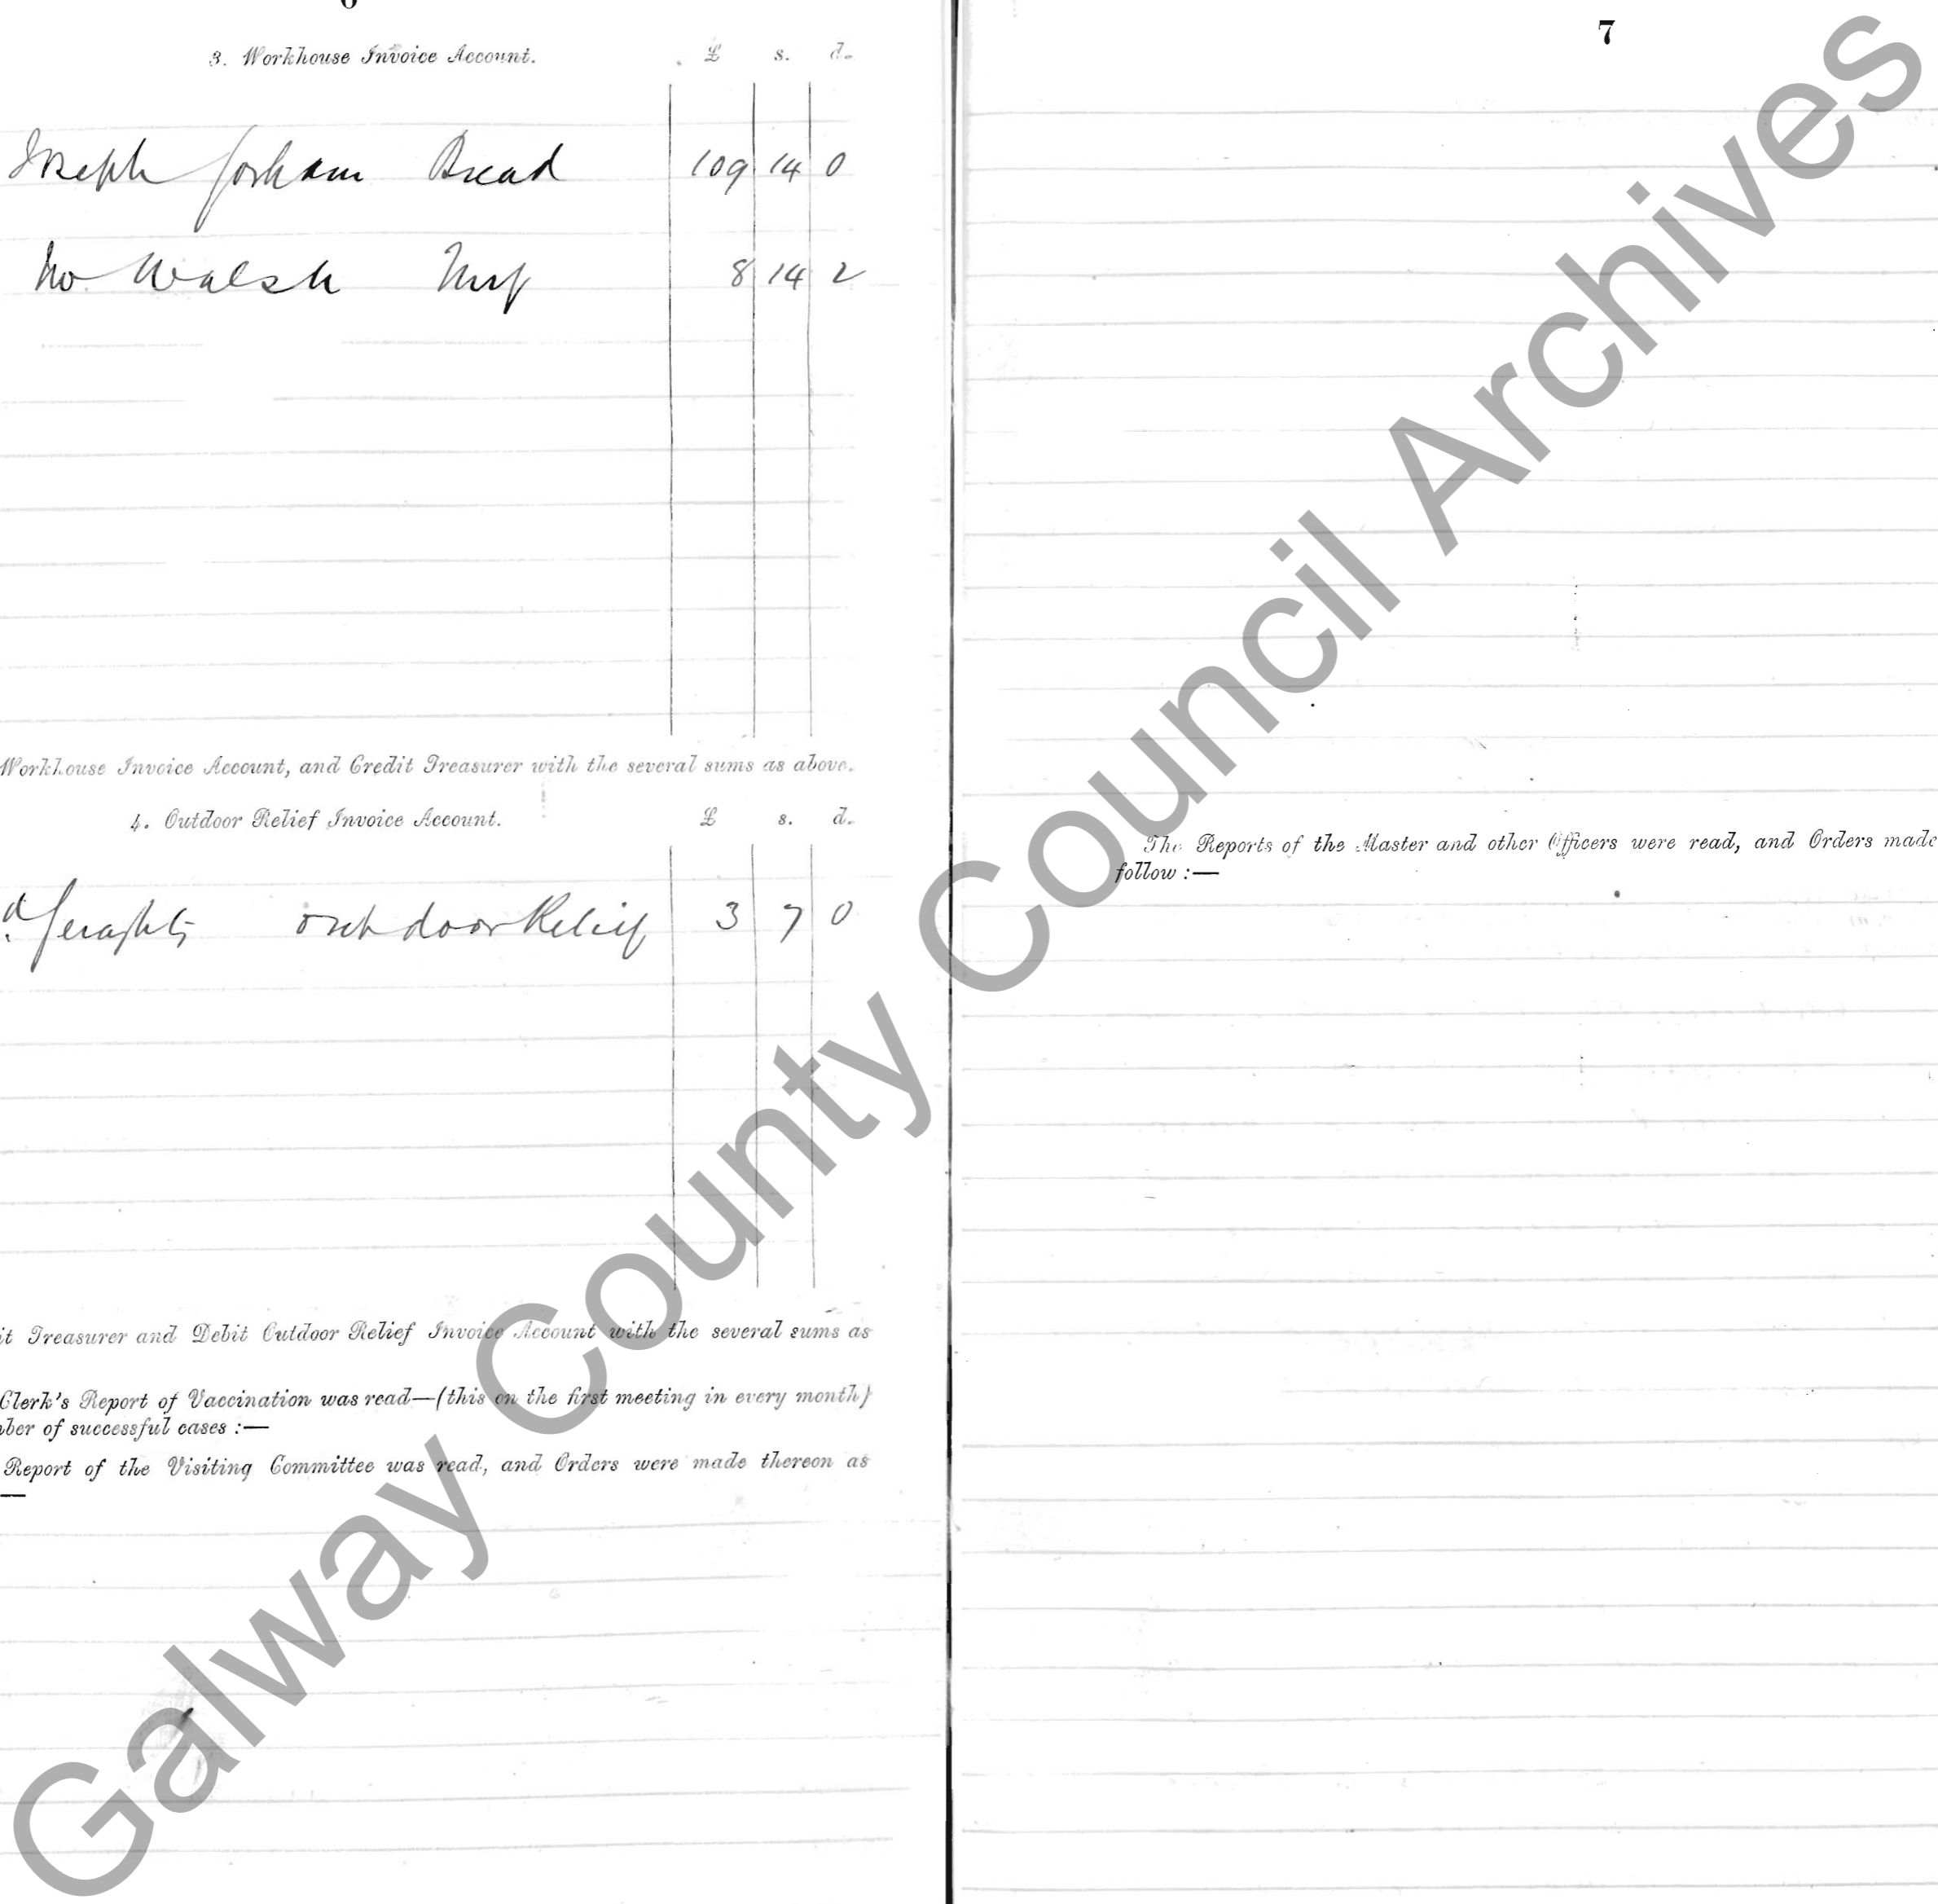 6
3. Workhouse Invoice Account. £ s. d.
Joseph Gorham Bread 109 14 0
Walsh Turf 8 14 2
Workhouse Invoice Account, and Credit Treasurer with the several sums as above.
4. Outdoor Relief Invoice Account. £ s. d.
d Geraghty outdoor Relief 3 7 0
it Treasurer and Debit Outdoor Relief Invoice Account with the several sums as
Clerk's Report of Vaccination was read—(this on the first meeting in every month)
ber of successful cases :—
Report of the Visiting Committee was read, and Orders were made thereon as
—
7
The Reports of the Master and other Officers were read, and Orders made
follow :—
Galway County Council Archives